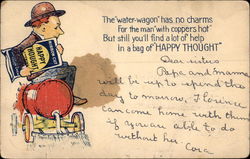 The "water-wagon" has no charms
For the man "with coppers hot"
But still you'll find a lot of help
in a bag of "HAPPY THOUGHT"
HAPPY
THOUGHT
Dear
Papa and Mama
will be up to spend the
day to morrow, Florence
can come home with them
if you are able to do
without her Cora